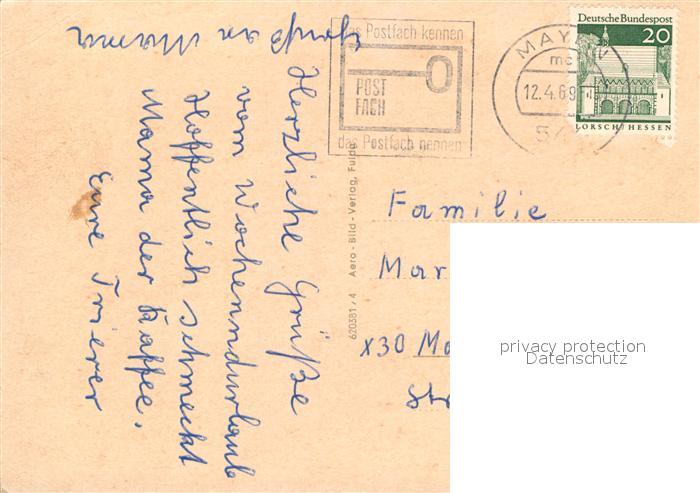 Gruß an Mama
Herzliche Grüße
vom Wochenendurlaub
Hoffentlich schmeckt
Mama der Kaffee.
Eure Trierer
das Postfach kennen
POST
FACH
das Postfach nennen
MAY
12.4.69
54
Deutsche Bundespost
20
LORSCH/HESSEN
620381/4 Aero-Bild-Verlag, Fulda
Familie
Mar
x30 Ma
Str
privacy protection
Datenschutz